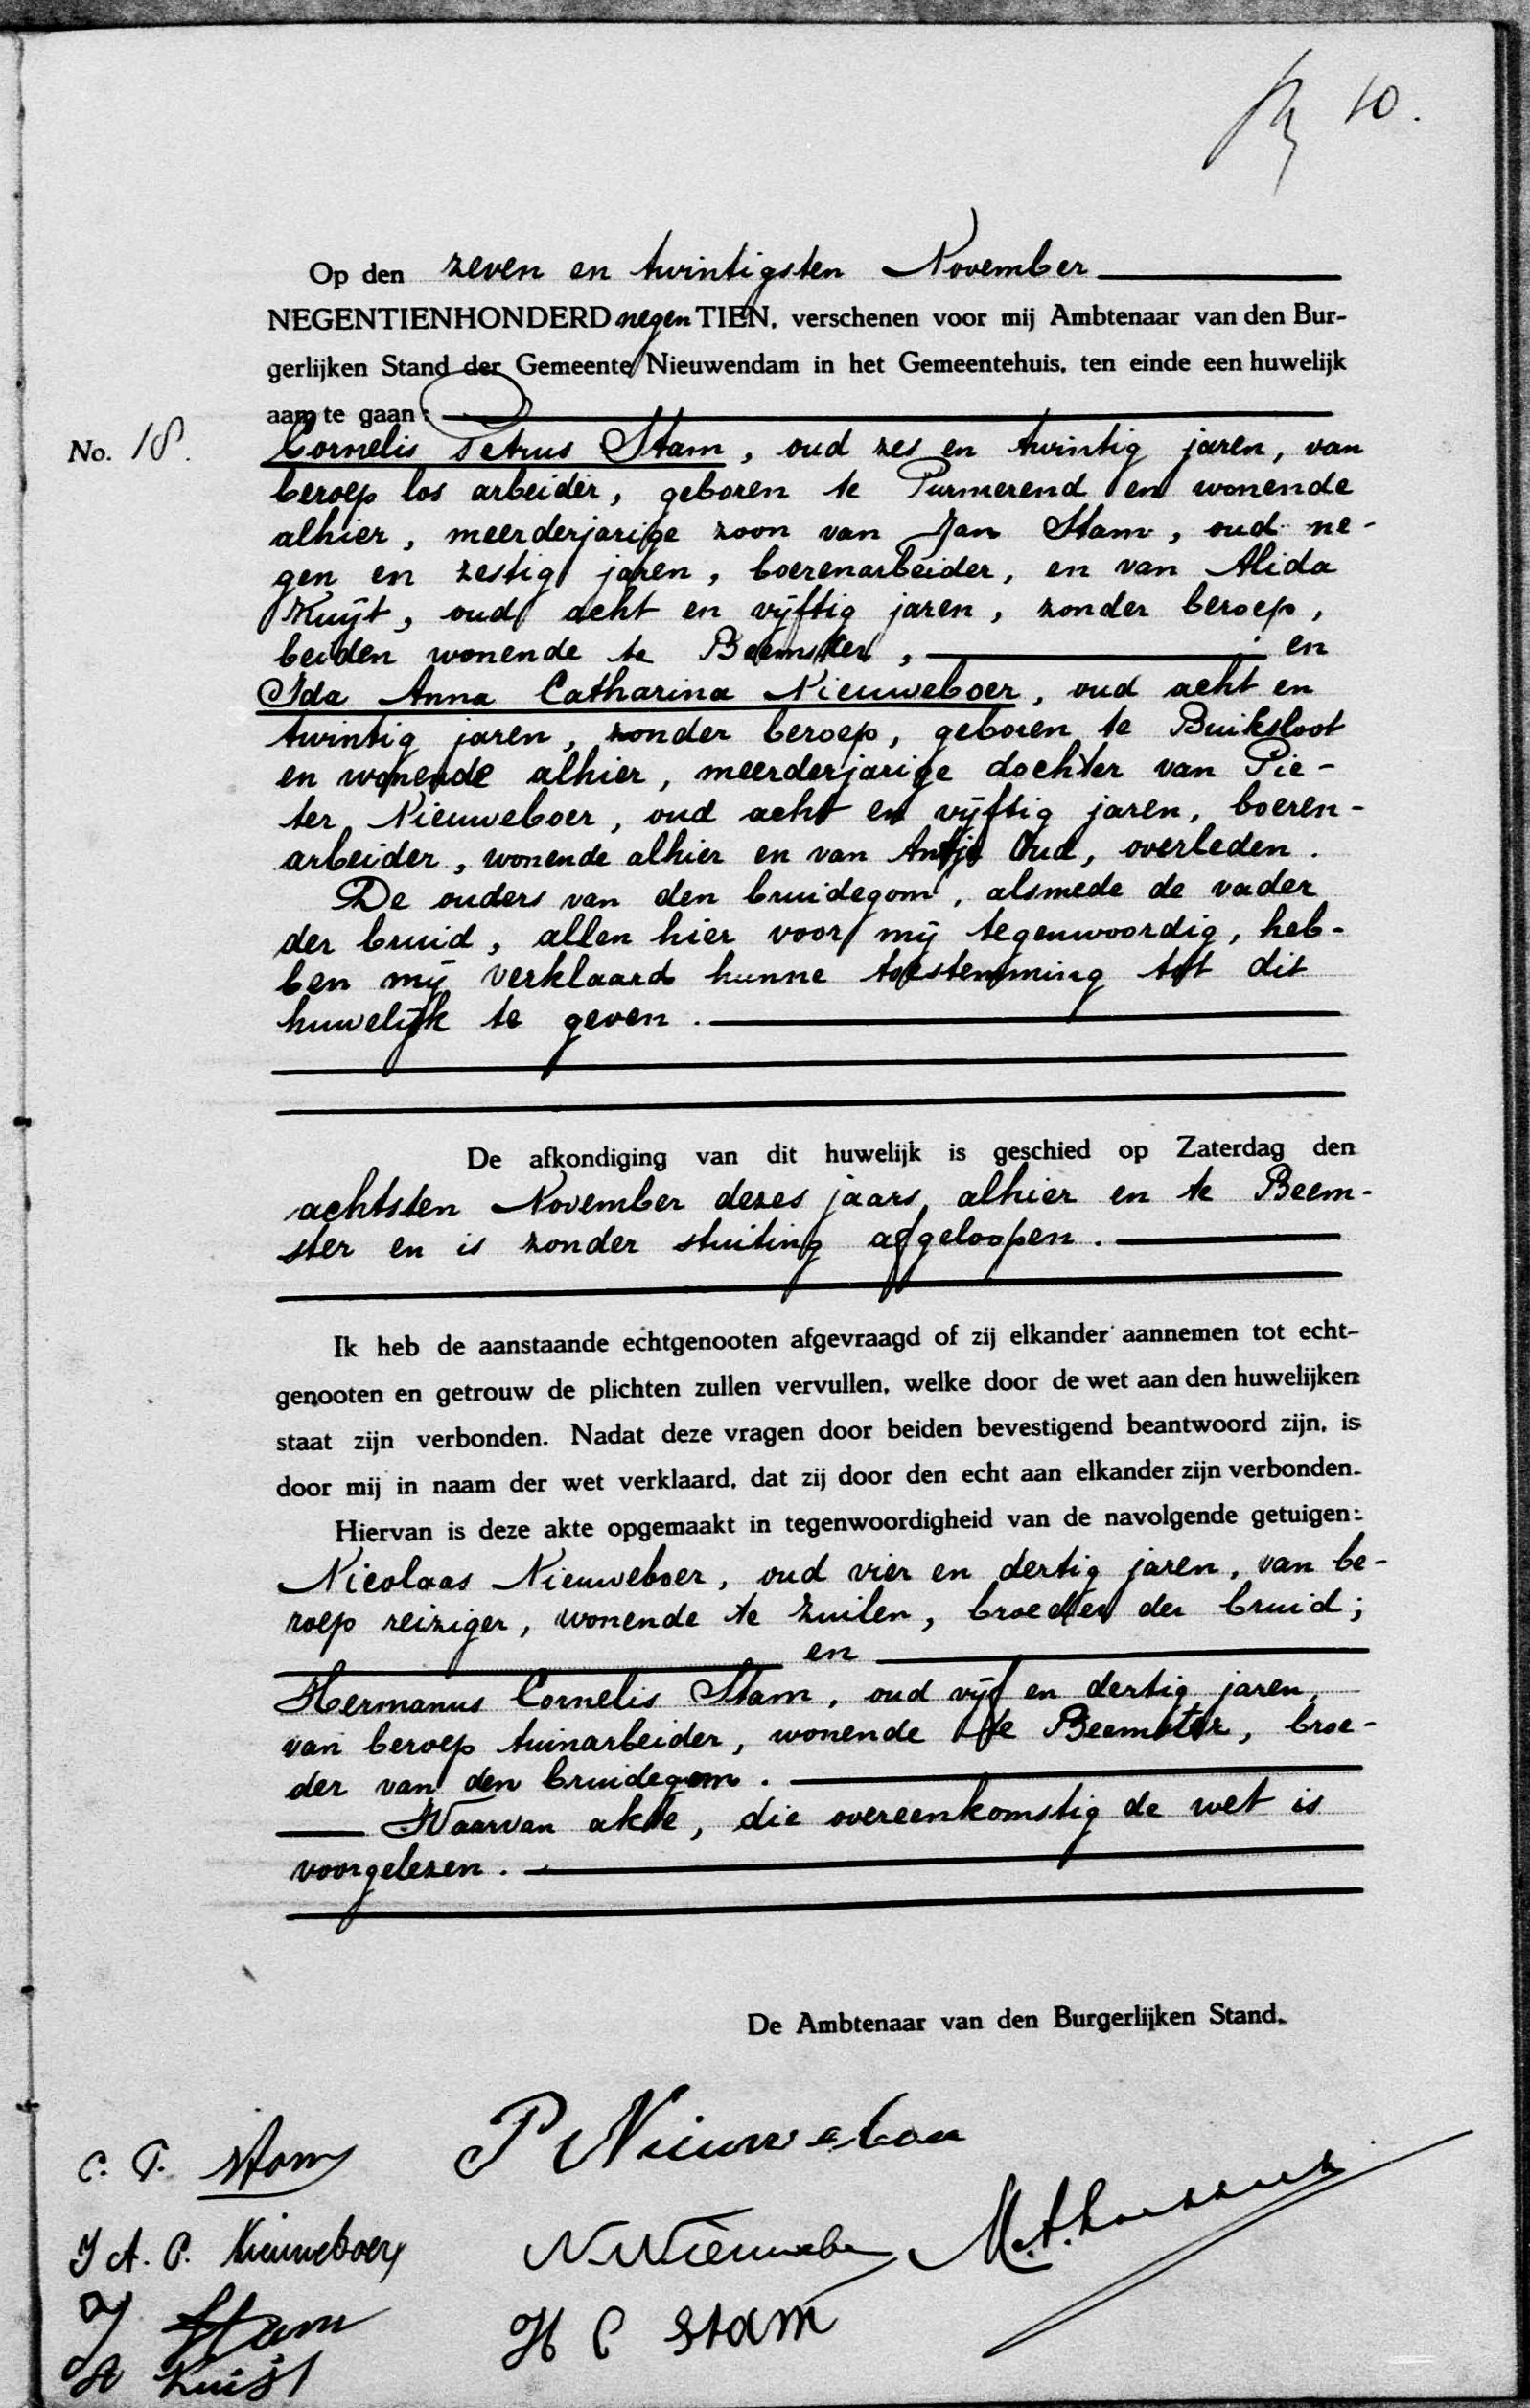 10.
Op den zeven en twintigsten November
NEGENTIENHONDERD negen TIEN, verschenen voor mij Ambtenaar van den Bur-
gerlijken Stand der Gemeente Nieuwendam in het Gemeentehuis, ten einde een huwelijk
aan te gaan:
No. 18.
Cornelis Petrus Stam, oud zes en twintig jaren, van
beroep los arbeider, geboren te Purmerend en wonende
alhier, meerderjarige zoon van Jan Stam, oud ne-
gen en zestig jaren, boerenarbeider, en van Alida
Kuijt, oud acht en vijftig jaren, zonder beroep,
beiden wonende te Beemster, en
Ida Anna Catharina Nieuweboer, oud acht en
twintig jaren, zonder beroep, geboren te Buiksloot
en wonende alhier, meerderjarige dochter van Pie-
ter Nieuweboer, oud acht en vijftig jaren, boeren-
arbeider, wonende alhier en van Antje Oud, overleden.
De ouders van den bruidegom, alsmede de vader
der bruid, allen hier voor mij tegenwoordig, heb-
ben mij verklaard hunne toestemming tot dit
huwelijk te geven.
De afkondiging van dit huwelijk is geschied op Zaterdag den
achtsten November dezes jaars, alhier en te Beem-
ster en is zonder stuiting afgeloopen.
Ik heb de aanstaande echtgenooten afgevraagd of zij elkander aannemen tot echt-
genooten en getrouw de plichten zullen vervullen, welke door de wet aan den huwelijken
staat zijn verbonden. Nadat deze vragen door beiden bevestigend beantwoord zijn, is
door mij in naam der wet verklaard, dat zij door den echt aan elkander zijn verbonden.
Hiervan is deze akte opgemaakt in tegenwoordigheid van de navolgende getuigen:
Nicolaas Nieuweboer, oud vier en dertig jaren, van be-
roep reiziger, wonende te Zuilen, broeder der bruid;
en
Hermanus Cornelis Stam, oud vijf en dertig jaren,
van beroep tuinarbeider, wonende te Beemster, broe-
der van den bruidegom.
Waarvan akte, die overeenkomstig de wet is
voorgelezen.
De Ambtenaar van den Burgerlijken Stand.
C. P. Stam
P Nieuweboer
I A. C. Nieuweboer
N. Nieuweboer
J Stam
H C Stam
A Kuijt